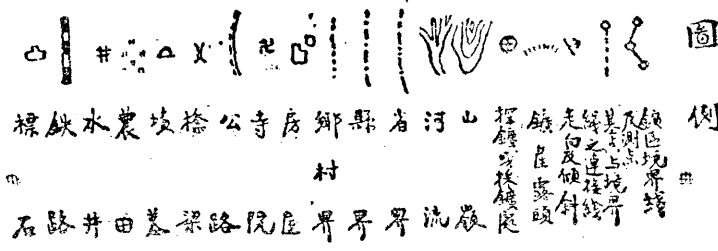 圖例
鑛區境界綫
及測点
基点与境界
綫之連接綫
走向及傾斜
鑛産露頭
探鑛或採鑛處
山嶺
河流
省界
縣界
鄉村界
房屋
寺院
公路
橋梁
坟墓
農田
水井
鉄路
標石